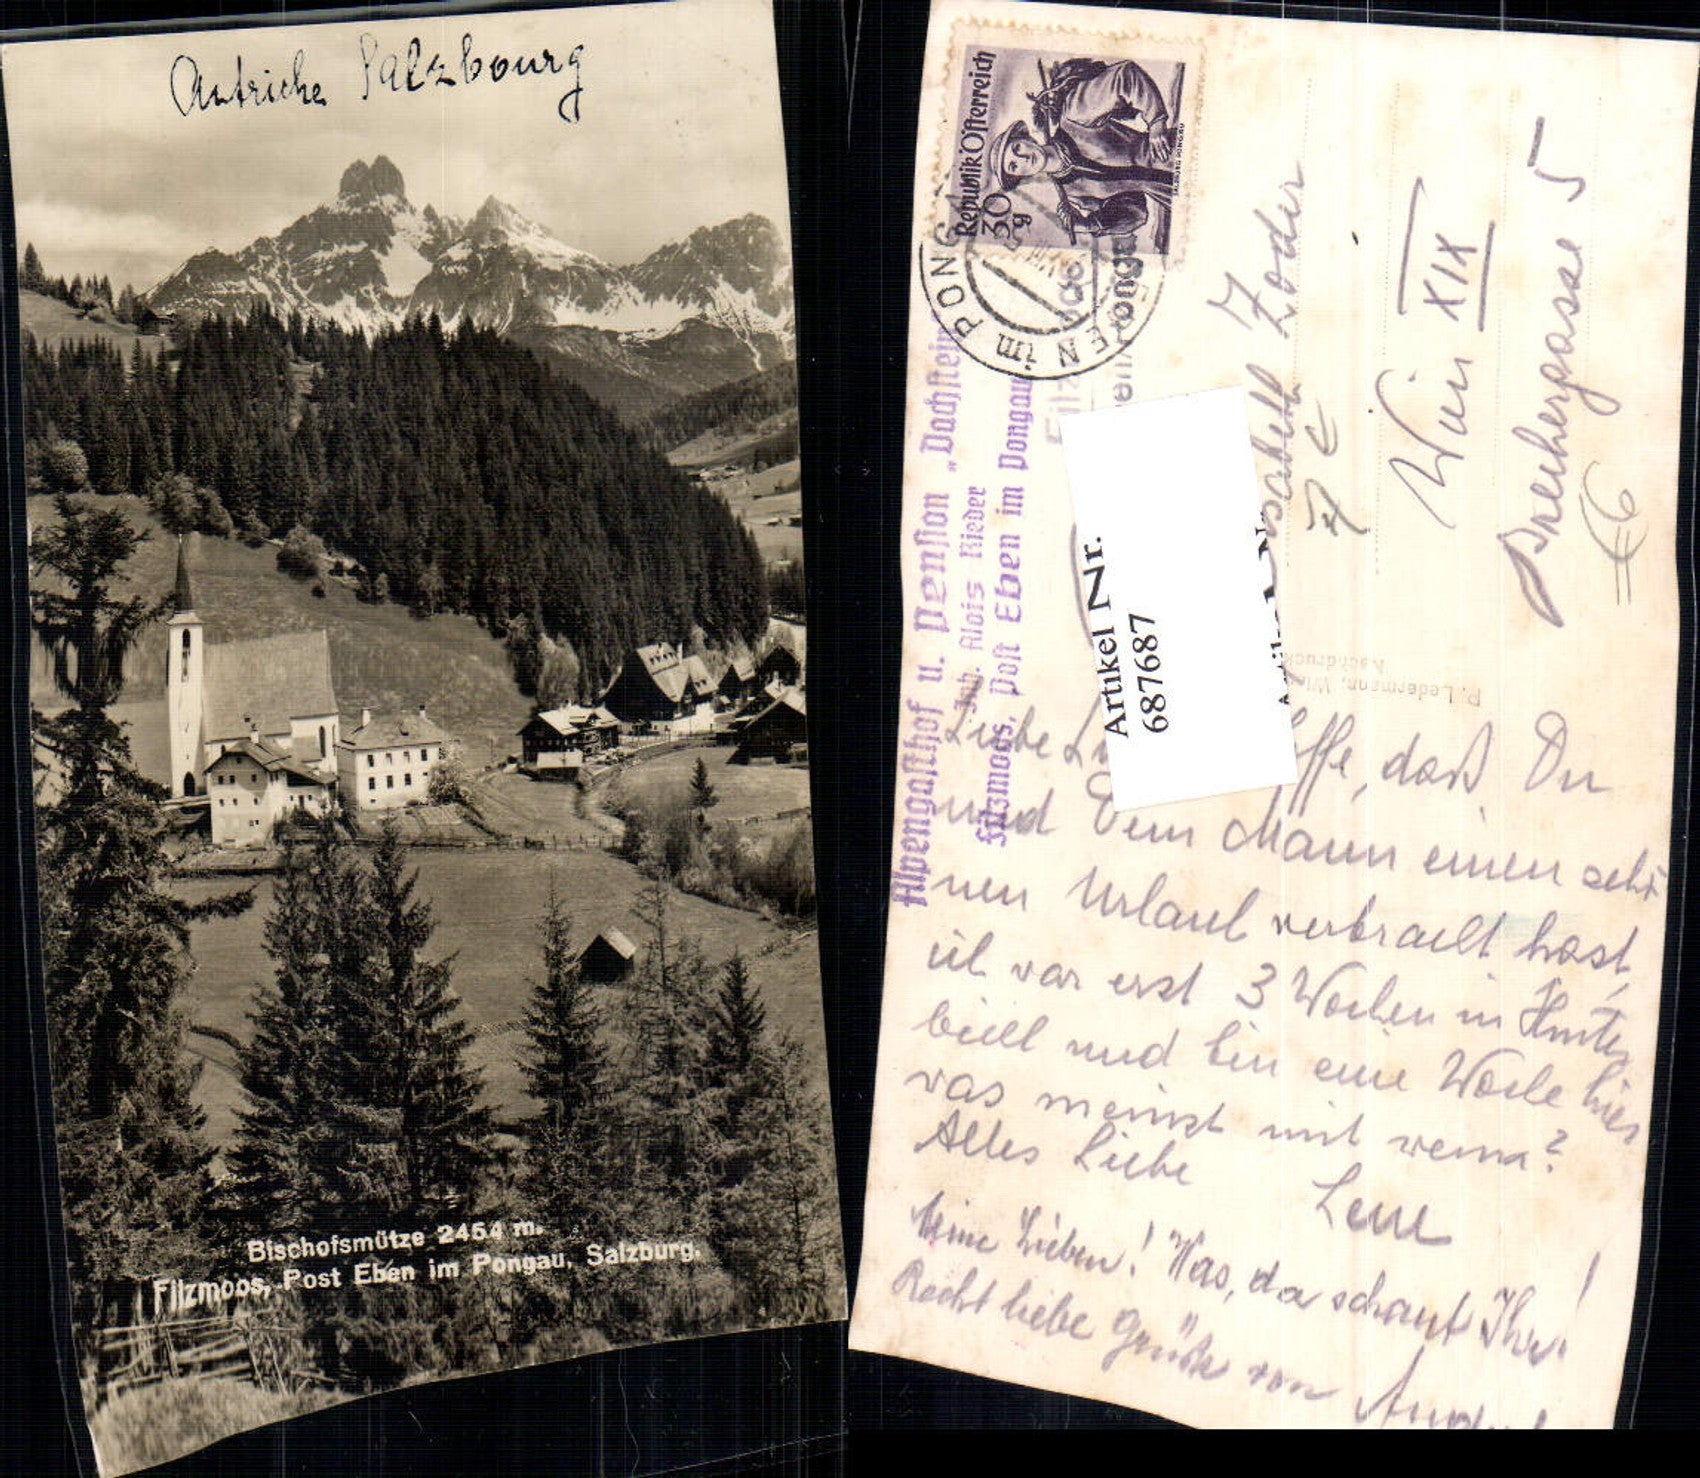 Autriche Salzbourg
Bischofsmütze 2454 m.
Filzmoos, Post Eben im Pongau, Salzburg.
Republik Österreich
30 g
SALZBURG PONGAU
EN im PONG
Alpengasthof u. Pension „Dachstein
Inh. Alois Rieder
Filzmoos, Post Eben im Pongau
Artikel Nr.
687687
Wien XIX
Drechergasse 5
€6
P. Ledermann, Wien
Nachdruck
Liebe daß Du
und Dein Mann einen schö
nen Urlaub verbracht hast,
ich war erst 3 Wochen in Hinter
bichl und bin eine Woche hier
was meinst mit wem?
Alles Liebe
Lene
Meine Lieben! Was, da schaut Ihr!
Recht liebe Grüße von